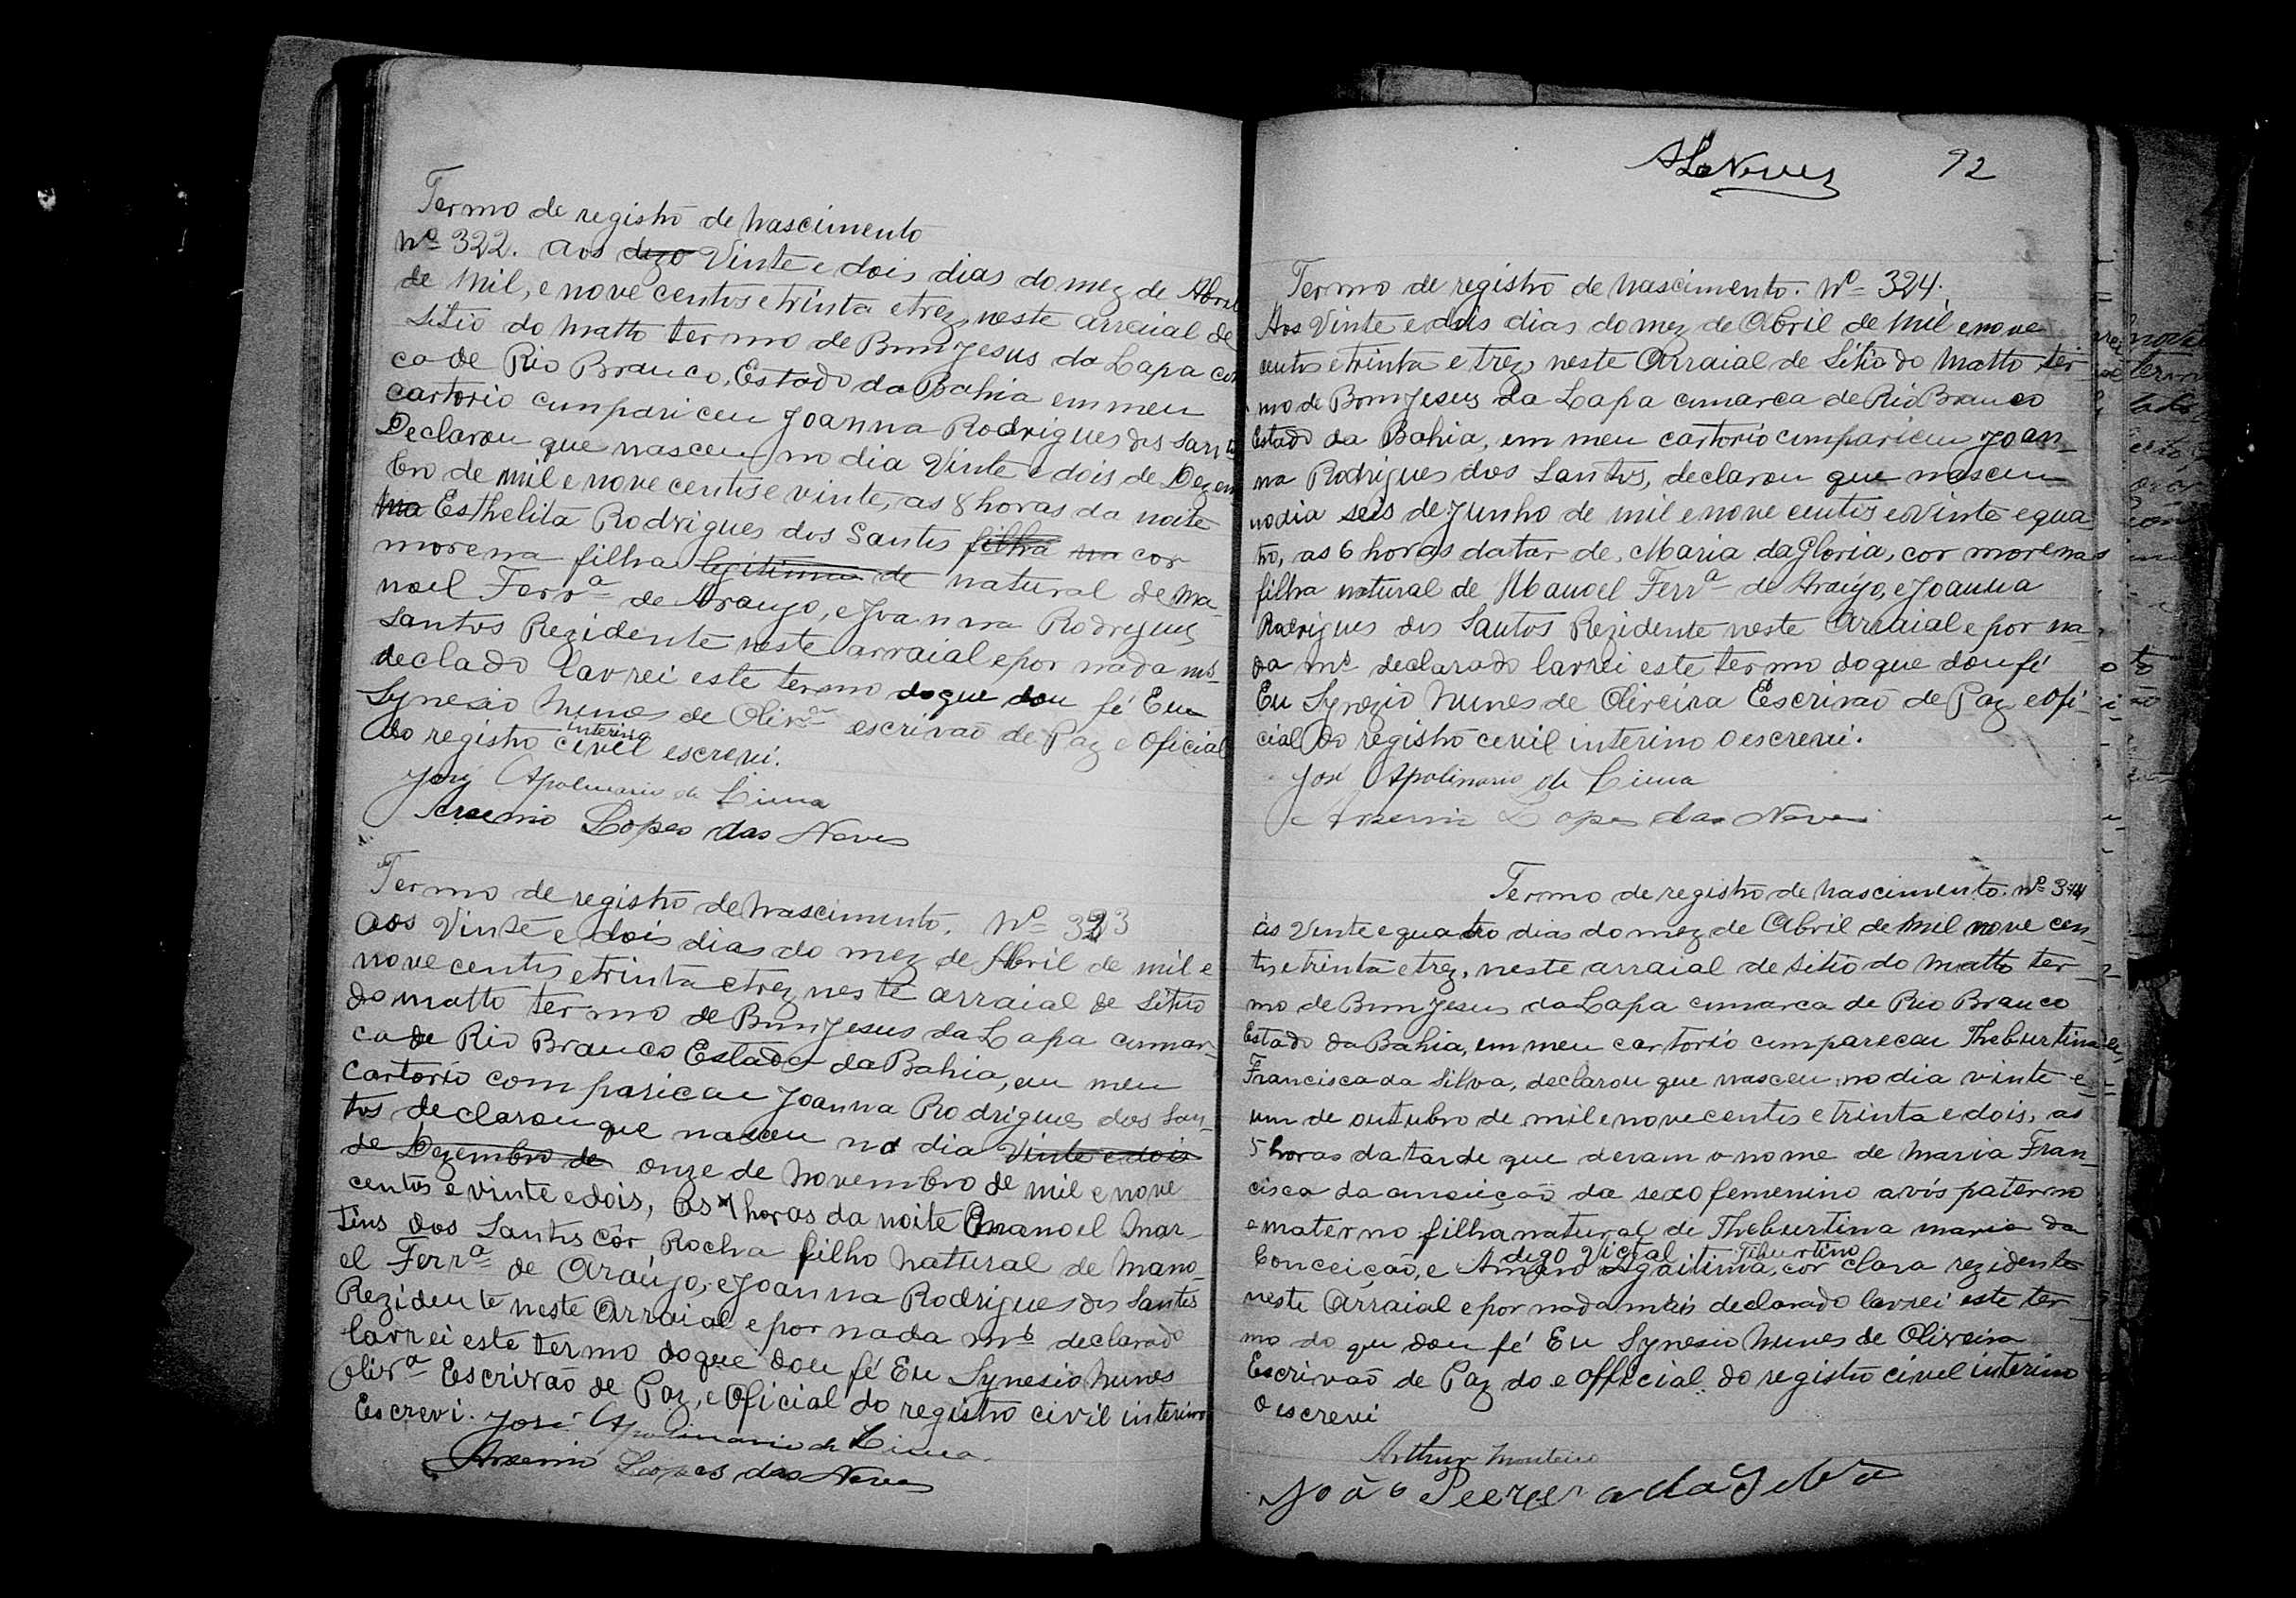 Termo de registro de Nascimento
Nº 322. Aos dezo Vinte e dois dias do mez de Abril
de Mil, e nove centos e trinta e trez, neste arraial de
Sitio do Matto termo de Bom Jesus da Lapa co
ca de Rio Branco, Estado da Bahia em meu
cartorio cumpariceu Joanna Rodrigues dos San
Declarou que nasceu no dia Vinte e dois de Dezem
bro de mil e nove centos e vinte, as 8 horas da noite
Esthelita Rodrigues dos Santos filha cor
morena filha legitima de natural de Ma-
noel Ferrª de Araujo, e Joanna Rodrigues
Santos Rezidente neste arraial e por nada ms
declado lavrei este termo do que dou fé Eu
Synesio Nunes de Olivrª escrivão de Paz e Oficial
do registro civil interino escrevi.
José Apolinario de Lima
Arsenio Lopes das Neves
Termo de registro de Nascimento. Nº 323
Aos Vinte e dois dias do mez de Abril de mil e
nove centos e trinta e trez neste arraial de Sitio
do Matto termo de Bom Jesus da Lapa cumar-
ca de Rio Branco Estado da Bahia, em meu
Cartorio compariceu Joanna Rodrigues dos San-
tos declarou que nasceu no dia Vinte e dois
de Dezembro de onze de Novembro de mil e nove
centos e vinte e dois, as horas da noite Manoel Mar-
tins dos Santos côr Rocha filho Natural de Mano-
el Ferrª de Araujo, e Joanna Rodrigues dos Santos
Rezidente neste Arraial e por nada ms declarado
lavrei este termo do que dou fé Eu Synesio Nunes
Olivrª Escrivão de Paz, e Oficial do registro civil interino
Escrevi. José Apolinario de Lima
Arsenio Lopes das Neves
ALNeves 92
Termo de registro de Nascimento. Nº 324.
Aos Vinte e dois dias do mez de Abril de Mil e nove
centos e trinta e trez, neste Arraial de Sitio do Matto ter-
mo de Bom Jesus da Lapa cumarca de Rio Branco
Estado da Bahia, em meu cartorio cumpariceu Joan-
na Rodrigues dos Santos, declarou que nasceu
no dia seis de Junho de mil e nove centos e Vinte e qua-
tro, as 6 horas da tar de, Maria da Gloria, cor morena
filha natural de Manoel Ferrª de Araujo, e Joanna
Rodrigues dos Santos Rezidente neste Arraial e por na-
da ms declarado lavrei este termo do que dou fé
Eu Synezio Nunes de Oliveira Escrivão de Paz e Ofi-
cial do registro cevil interino o escrevi.
José Apolinario de Lima
Arsenio Lopes das Neves
Termo de registro de Nascimento. Nº
ás Vinte e quatro dias do mez de Abril de Mil nove cen-
tos e trinta e trez, neste arraial de Sitio do Matto ter-
mo de Bom Jesus da Lapa cumarca de Rio Branco
Estado da Bahia, em meu cartorio cumpareceu Theburtina
Francisca da Silva, declarou que nasceu no dia vinte e
um de outubro de mil e nove centos e trinta e dois, as
5 horas da tarde que deram o nome de Maria Fran-
cisca da do sexo femenino avós paterno
e materno filha natural de Theburtina Maria da
digo Tiburtino
Conceição, e cor clara rezidente
neste Arraial e por nada mais declarado lavrei este ter
mo do que dou fé Eu Synesio Nunes de Oliveira
Escrivão de Paz do e official do registro civel interino
o escrevi
Arthur Monteiro
João Pereira da Silva